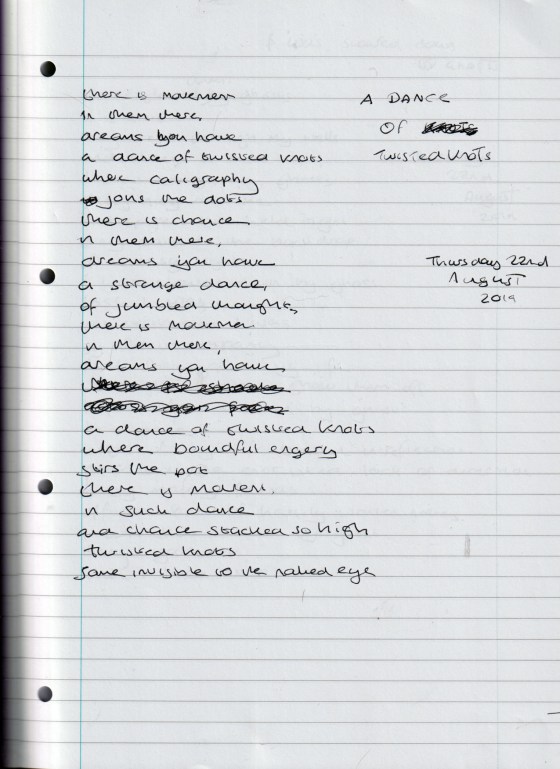 A DANCE
OF
Twisted Knots
Thursday 22nd
August
2019
there is movement
in them there,
dreams you have
a dance of twisted knots
where caligraphy
joins the dots
there is chance
in them there,
dreams you have
a strange dance,
of jumbled thoughts,
there is movement
in them there,
dreams you have
a dance of twisted knots
where boundful energy
stirs the pot
there is
in such dance
and chance stacked so high
twisted knots
some invisible to the naked eye